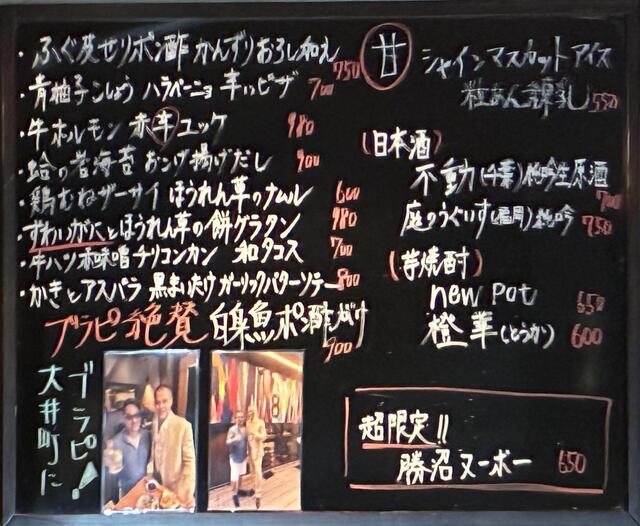 ・ふぐ皮せりポン酢かんずりおろし和え 750
・青柚子こしょう ハラペーニョ 辛いピザ 700
・牛ホルモン 赤辛ユッケ 980
・蛤の岩海苔 おこげ揚げだし 900
・鶏むねザーサイ ほうれん草のナムル 600
・ずわいがにとほうれん草の餅グラタン 980
・牛ハツ赤味噌チリコンカン 和タコス 700
・かきとアスパラ 黒まいたけガーリックバターソテー 800
ブラピ絶賛 白身魚ポン酢がけ 900
ブラピ!
大井町に
甘
シャインマスカットアイス
粒あん 練乳 550
(日本酒)
不動(千葉)純吟生原酒 700
庭のうぐいす(福岡)純吟 750
(芋焼酎)
new pot 550
橙華(とうか) 600
超限定!!
勝沼ヌーボー 650